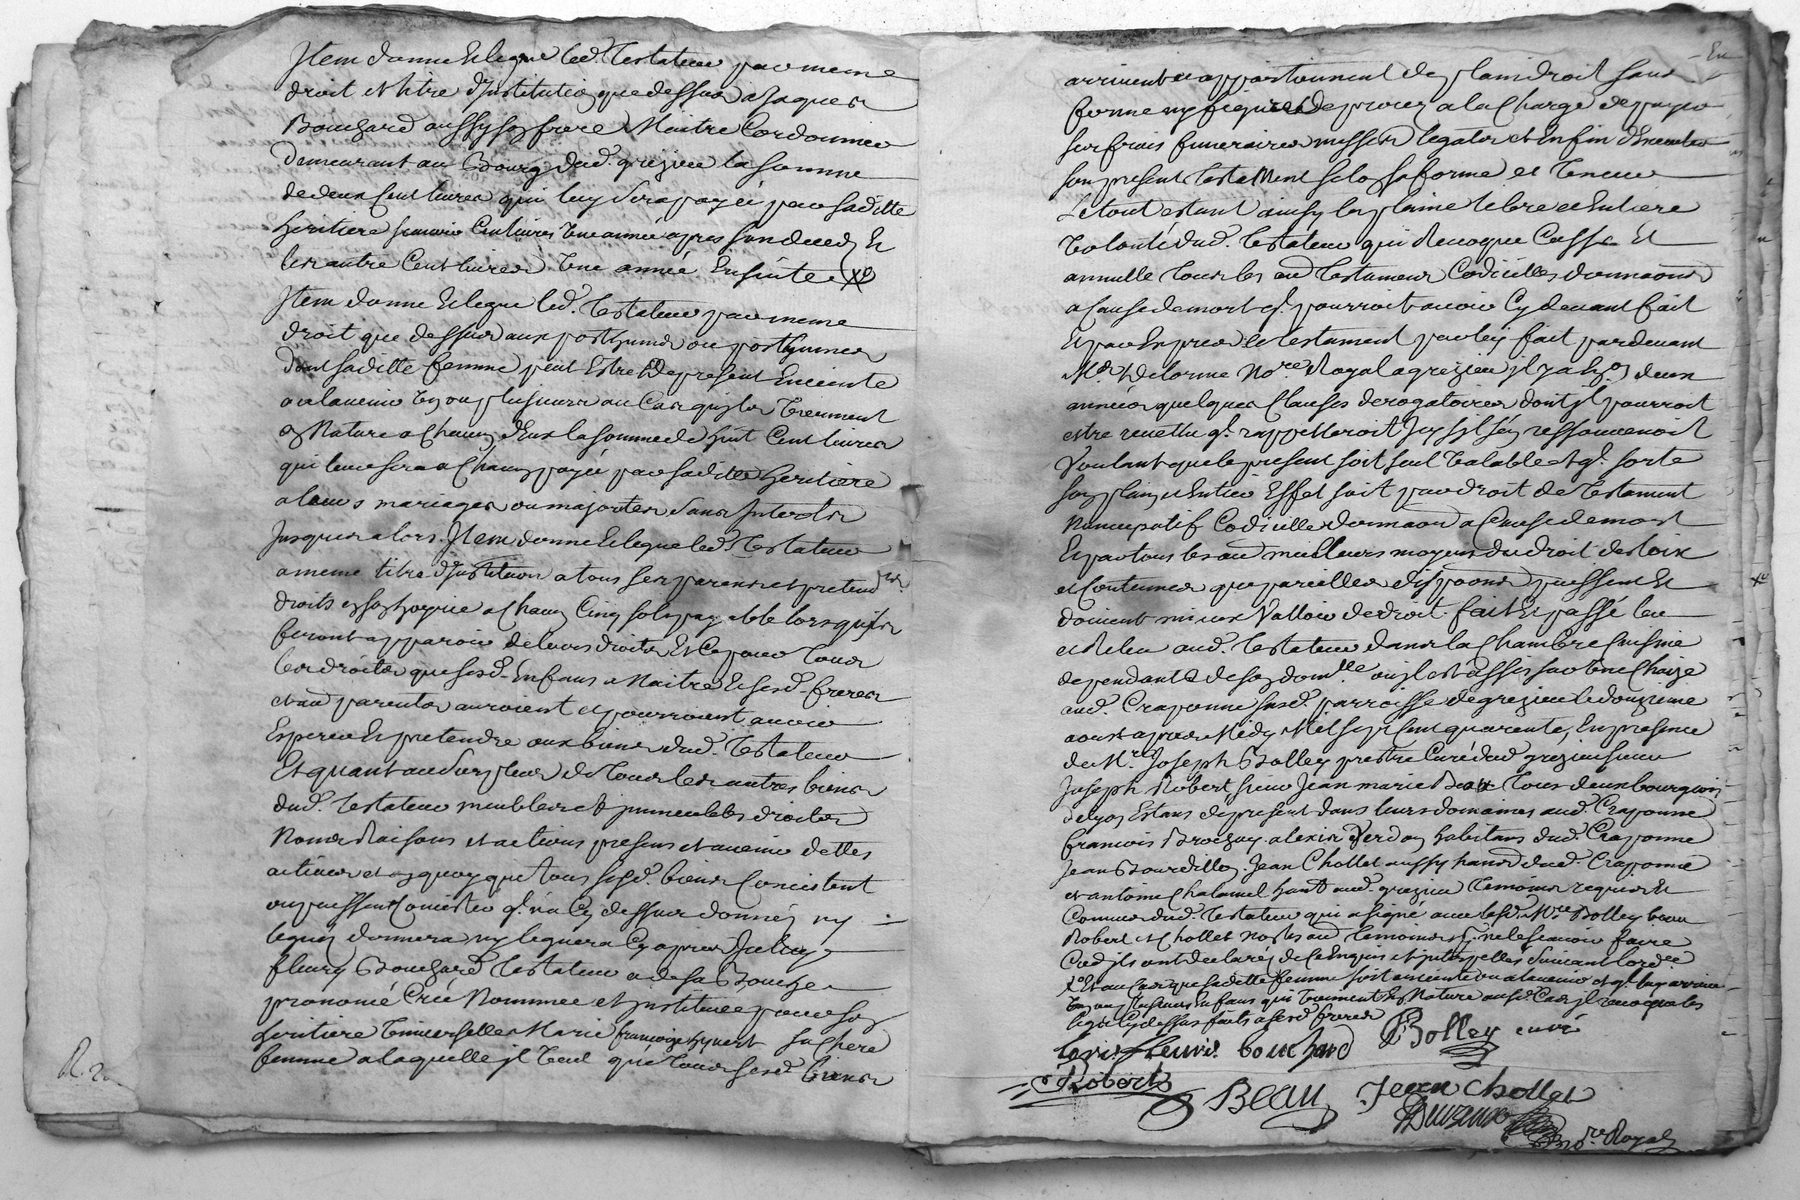 Item donne et legue led. Testateur par meme
droit et titre d'Institution que dessus a Jaques
Bouchard aussy son frere Maitre Cordonnier
demeurant au Bourg dud. grezieu la somme
de deux Cent livres qui luy sera payée par sa ditte
heritiere Cent livres une année apres son deceds Et
les autre Cent livres une année Ensuitte
Item donne et legue led. Testateur par meme
droit que dessus aux posthumes ou posthumes
dont sa ditte femme peut Estre de present Enceinte
a l'avenir un ou plusieurs au Cas quils viennent
en Nature a Chacun d'Eux la somme de huit Cent livres
qui leur sera a Chacun payée par sa ditte heritiere
a leurs mariages ou majorites sans Interets
jusques a lors. Item donne et legue led. Testateur
a meme titre d'Institution a tous ses parens et pretend.
droits en son hoyrie a Chacun Cinq sols payable lors quils
feront apparoir de leurs droits Et Ce pour tous
les droits que sesd. Enfans a Naitre Et sesd. freres
et au. parents auroient et pourroient avoir
Esperer Et pretendre aux biens dud. Testateur
Et quant au surplus de tous les autres biens
dud. Testateur meubles et immeubles droits
Noms Raisons et actions presens et avenir dettes
actives et en quoy que tous sesd. biens Consistent
ou puissent Consister qu. n'a Cy dessus donné ny
legué donnera ny leguera Cy apres Iceluy
fleury Bouchard Testateur a de sa Bouche
prononcé Créé Nommee et Instituee pour son
heritiere universelle Marie françoise hyvert sa Chere
femme a laquelle il veut que tous sesd. biens
arrivent et appartiennent de plain droit sans
forme ny figure de procez a la Charge de payer
ses frais funeraires missions legats et Enfin d'Executer
son present testament selon sa forme et teneur
Le tout estant ainsy la plaine libre et Entiere
volonté dud. Testateur qui Revoque Casse Et
annulle tous les au. Testamens Codicilles donnaons
a Cause de mort q. pourroit avoir Cy devant fait
Et par Expres le testament par luy fait pardevant
Me. Delorme Nore Royal a grezieu il y a Env. deux
années quelques Clauses derogatoires dont il pourroit
estre revetu q. rappelleroit Icy s'il s'en ressouvenoit
Voulant que le present soit seul valable et q. sorte
son plain et Entier Effet soit par droit de testament
Nuncupatif Codicille donnaon a Cause de mort
Et par tous les au. meilleurs moyens du droit des loix
et Coutumes que pareilles dispoons puissent Et
doivent mieux Valloir de droit. fait Et passé leu
et Releu aud. Testateur dans la Chambre Cuisine
dependante de son domlle ou il est assis sur une Chaize
aud. Craponne susd. parroisse de grezieu le douzieme
aoust apres Midy Mil sept Cent quarente, En presence
de Mre Joseph Bolley prestre Curé dud. grezieu sieur
Joseph Robert sieur Jean marie Beau tous deux bourgeois
de Lyon Estans de present dans leurs domaines aud. Craponne
francois Brochay alexis Verdon habitans dud. Craponne
Jean Bourdillon Jean Chollet aussy hans dud. Craponne
et antoine Chalamel hant aud. grezieu temoins requis Et
Connus dud. Testateur qui a signé avec lesd. Mre Bolley beau
Robert et Chollet non les au. temoins p. ne le scavoir faire
Ce qu'ils ont declarez de Ce Enquis et Interpellés suivant l'ordce
Et au Cas que sa ditte femme soit enceinte ou a l'avenir et q. luy arrive
un ou plusieurs Enfans qui viennent En Nature aud. Cas il revoque les
legats Cy dessus faits a sesd. freres
fleuris bouchard Bolley curé
Robert BEAU Jean chollet
re Royal